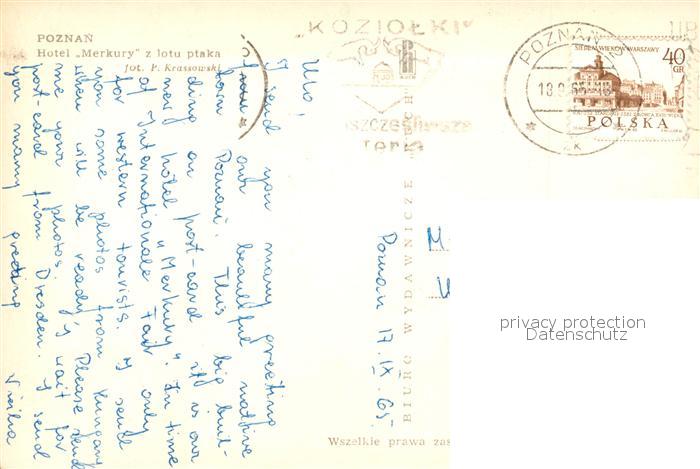 POZNAŃ
Hotel „Merkury" z lotu ptaka
fot. P. Krassowski
„KOZIOŁKI"
POZNAŃ
SIEDEM WIEKÓW WARSZAWY
40
GR
POLSKA
I send you many greeting
from our beautiful native
town Poznań. This big buil-
ding on post-card it is our
new hôtel "Merkury". In time
of Internationale Fair only
for western tourists. I send
you some photos from Hungary
when will be ready, Please send
me your photos. I wait for
post-card from Dresden. I send
you many greeting
Poznań 17.IX.65.
BIURO WYDAWNICZE „RUCH"
Wszelkie prawa zas
privacy protection
Datenschutz